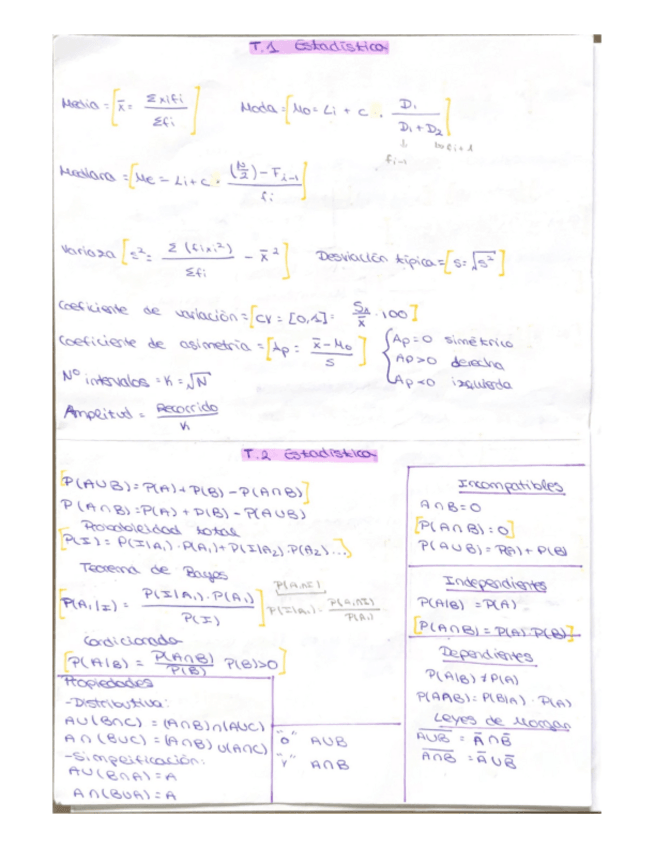 T.1 Estadística
Media = [x̄ = Σxifi / Σfi]
Moda = [Mo = Li + c · D₁ / (D₁ + D₂)]
fi-1
Mediana = [Me = Li + c · ((N/2) - Fi-1) / fi]
Varianza [s² = Σ(fixi²) / Σfi - x̄²]
Desviación típica = [s = √s²]
Coeficiente de variación = [CV = [0,1] = Sx / x̄ · 100]
Coeficiente de asimetría = [Ap = (x̄ - Mo) / S]
Ap = 0 simétrico
Ap > 0 derecha
Ap < 0 izquierda
Nº intervalos = K = √N
Amplitud = Recorrido / K
T.2 Estadística
[P(A∪B) = P(A) + P(B) - P(A∩B)]
P(A∩B) = P(A) + P(B) - P(A∪B)
Probabilidad total
[P(I) = P(I|A₁) · P(A₁) + P(I|A₂) · P(A₂) ...]
Teorema de Bayes
[P(A₁|I) = P(I|A₁) · P(A₁) / P(I)]
P(A₁∩I)
P(I|A₁) = P(A₁∩I) / P(A₁)
Condicionada
[P(A|B) = P(A∩B) / P(B) P(B)>0]
Propiedades
-Distributiva:
A∪(B∩C) = (A∩B)∩(A∪C)
A∩(B∪C) = (A∩B)∪(A∩C)
-Simplificación:
A∪(B∩A) = A
A∩(B∪A) = A
"o" A∪B
"y" A∩B
Incompatibles
A∩B = 0
[P(A∩B) = 0]
P(A∪B) = P(A) + P(B)
Independientes
P(A|B) = P(A)
[P(A∩B) = P(A) · P(B)]
Dependientes
P(A|B) ≠ P(A)
P(A∩B) = P(B|A) · P(A)
Leyes de Morgan
A̅∪̅B̅ = A̅ ∩ B̅
A̅∩̅B̅ = A̅ ∪ B̅